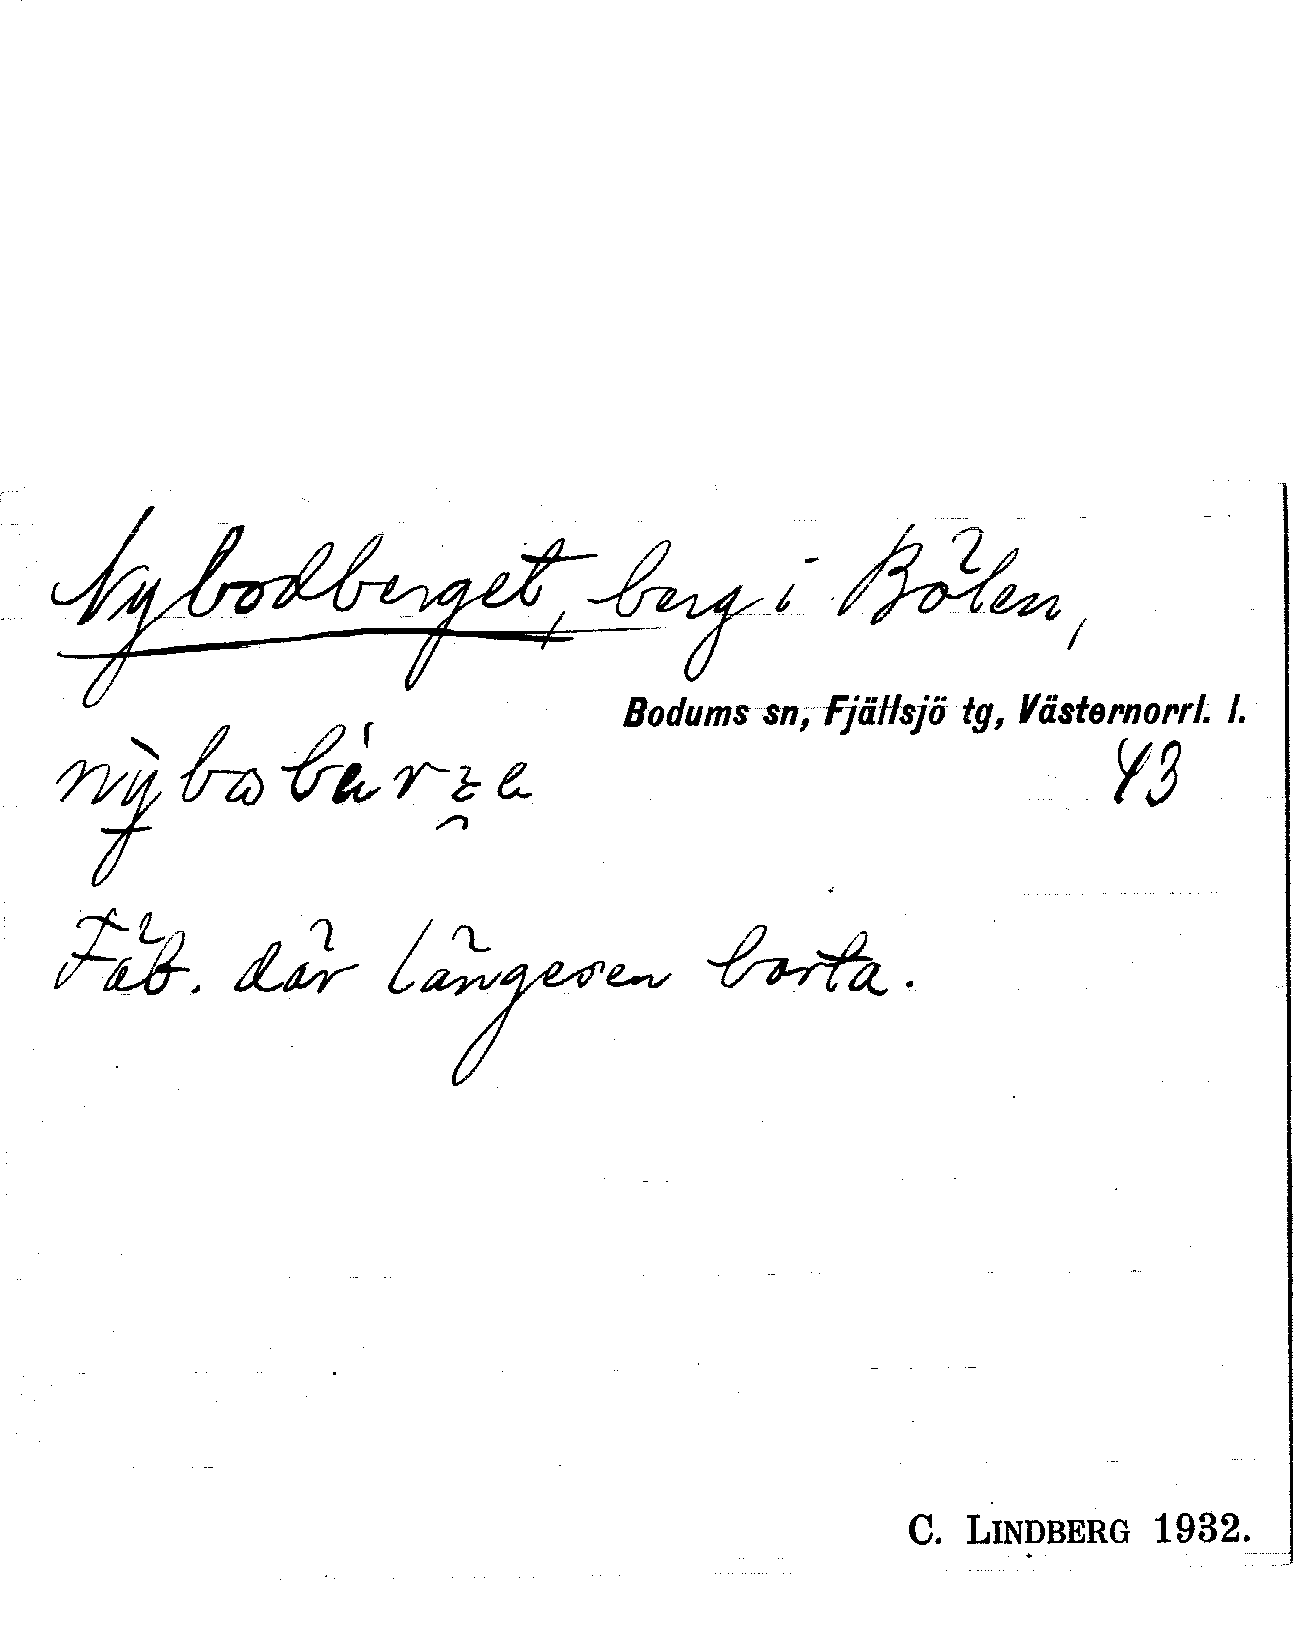 Nybodberget, berg i Bölen,
Bodums sn, Fjällsjö tg, Västernorrl. l.
43
Fäb. där längesen borta.
C. LINDBERG 1932.